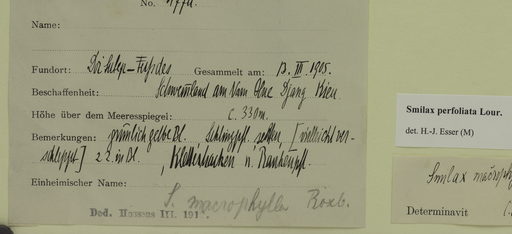 No.
Name:
Fundort: Doi Sutep-Fußdes Gesammelt am: 13. III. 1905.
Beschaffenheit: Schwemmland am Nam
Höhe über dem Meeresspiegel: c. 330m.
Bemerkungen: grünlichgelbe Bl. Schlingpfl. selten, [vielleicht ver-
schleppt] 2 2. in Bl., Kletterhacken u. Rankenpfl.
Einheimischer Name:
S. macrophylla Roxb.
Ded. Hosseus III. 191
Smilax perfoliata Lour.
det. H.-J. Esser (M)
Smilax macroph
Determinavit